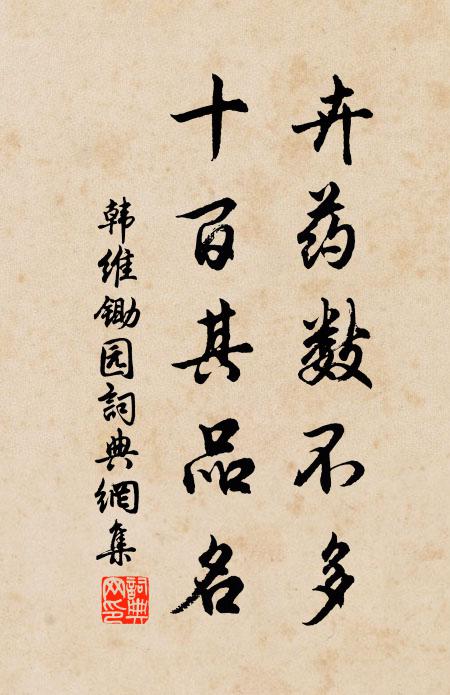 卉药数不多
十百其品名
韩维锄园詞典網集
詞典網印